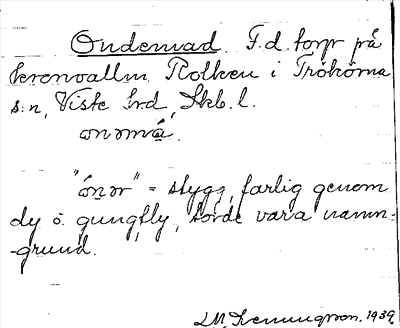 Ondemad F.d. torp på
kronoallm. Rolken i Trökörna
s:n, Viste hrd, Skb. l.
onəmá.
"ónər" = stygg, farlig genom
dy o. gungfly, torde vara namn-
-grund.
1939